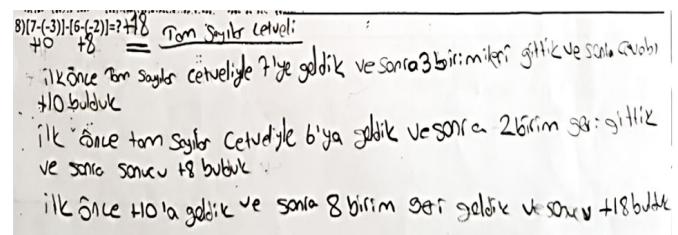 8)[7-(-3)]-[6-(-2)]=?+18
+10 +8 Tam Sayılar Cetveli
ilk önce Tam Sayılar cetveliyle 7'ye geldik ve sonra 3 birim ileri gittik ve sonra cevabı
+10 bulduk
ilk önce tam sayılar cetveliyle 6'ya geldik ve sonra 2 birim geri gittik
ve sonra sonucu +8 bulduk
ilk önce +10'a geldik ve sonra 8 birim geri geldik ve sonucu +18 bulduk